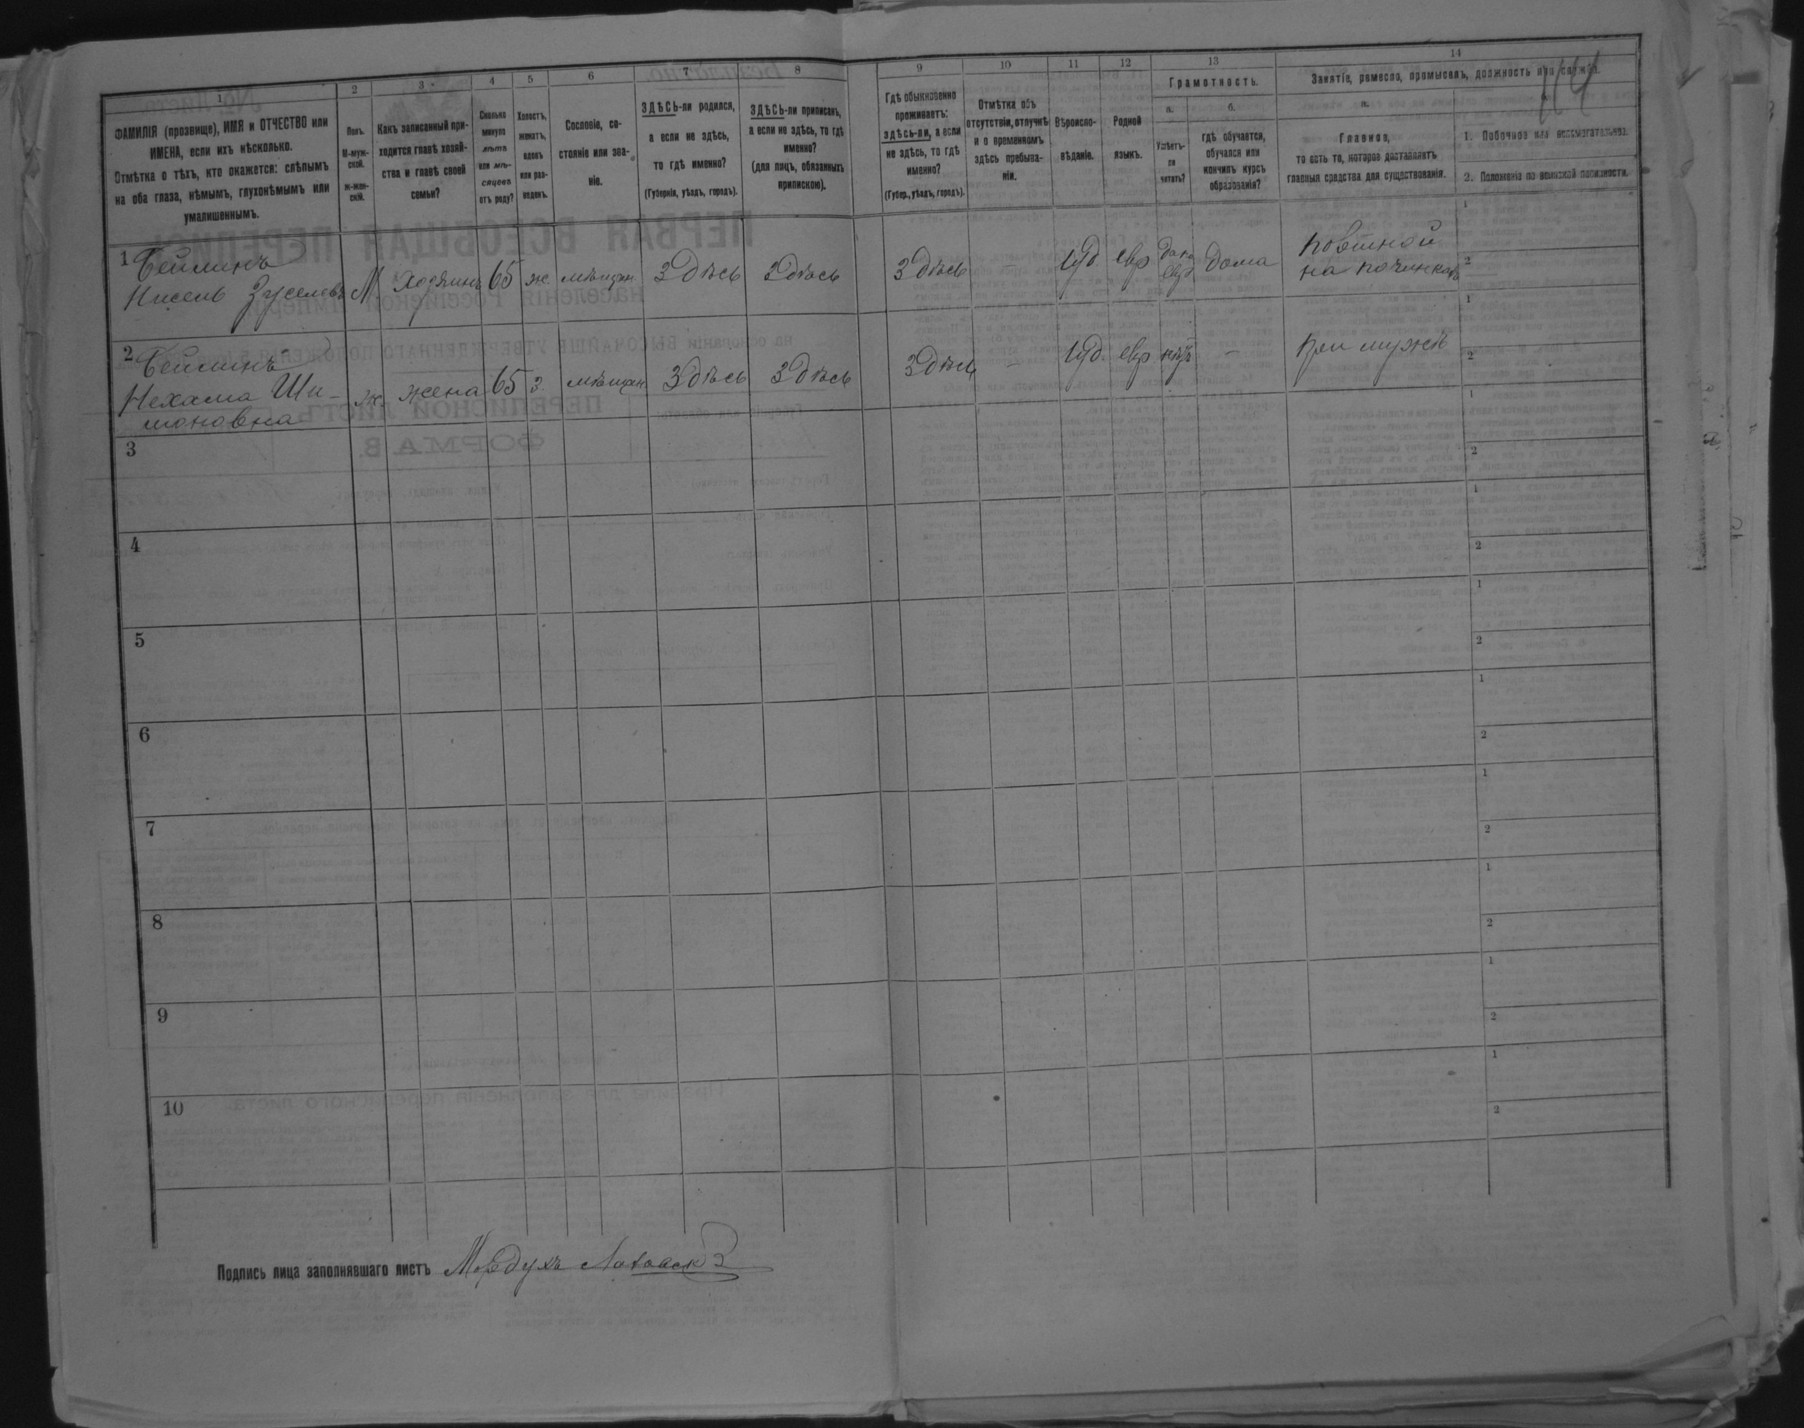 1
2
3
4
5
6
7
8
9
10
11
12
13
14
ФАМИЛІЯ (прозвище), ИМЯ и ОТЧЕСТВО или
ИМЕНА, если ихъ нѣсколько.
Отмѣтка о тѣхъ, кто окажется: слѣпымъ
на оба глаза, нѣмымъ, глухонѣмымъ или
умалишеннымъ.
Полъ.
М-муж-
ской.
Ж-жен-
скій.
Какъ записанный при-
ходится главѣ хозяй-
ства и главѣ своей
семьи?
Сколько
минуло
лѣтъ
или мѣ-
сяцевъ
отъ роду?
Холостъ,
женатъ,
вдовъ
или раз-
веденъ.
Сословіе, со-
стояніе или зва-
ніе.
ЗДѢСЬ-ли родился,
а если не здѣсь,
то гдѣ именно?
(Губернія, уѣздъ, городъ).
ЗДѢСЬ-ли приписанъ,
а если не здѣсь, то гдѣ
именно?
(для лицъ, обязанныхъ
припискою).
Гдѣ обыкновенно
проживаетъ:
здѣсь-ли, а если
не здѣсь, то гдѣ
именно?
(Губер., уѣздъ, городъ).
Отмѣтка объ
отсутствіи, отлучкѣ
и о временномъ
здѣсь пребыва-
ніи.
Вѣроиспо-
вѣданіе.
Родной
языкъ.
Грамотность.
а.
б.
Умѣетъ-
ли
читать?
гдѣ обучается,
обучался или
кончилъ курсъ
образованія?
Занятіе, ремесло, промыселъ, должность или служба.
а.
Главное,
то есть то, которое доставляетъ
главныя средства для существованія.
1. Побочное или вспомогательное.
2. Положеніе по воинской повинности.
1 Бейлинъ
Нисель Зуселевъ М Хозяинъ 65 ж. мѣщан Здѣсь Здѣсь Здѣсь Іуд евр да на евр дома Повтной на починкахъ
1
2
2 Бейлинъ
Нехама Ши-
моновна ж. жена 65 з. мѣщан Здѣсь Здѣсь Здѣсь — Іуд. евр нѣтъ — При мужѣ
1
2
3
1
2
4
1
2
5
1
2
6
1
2
7
1
2
8
1
2
9
1
2
10
1
2
Подпись лица заполнявшаго листъ